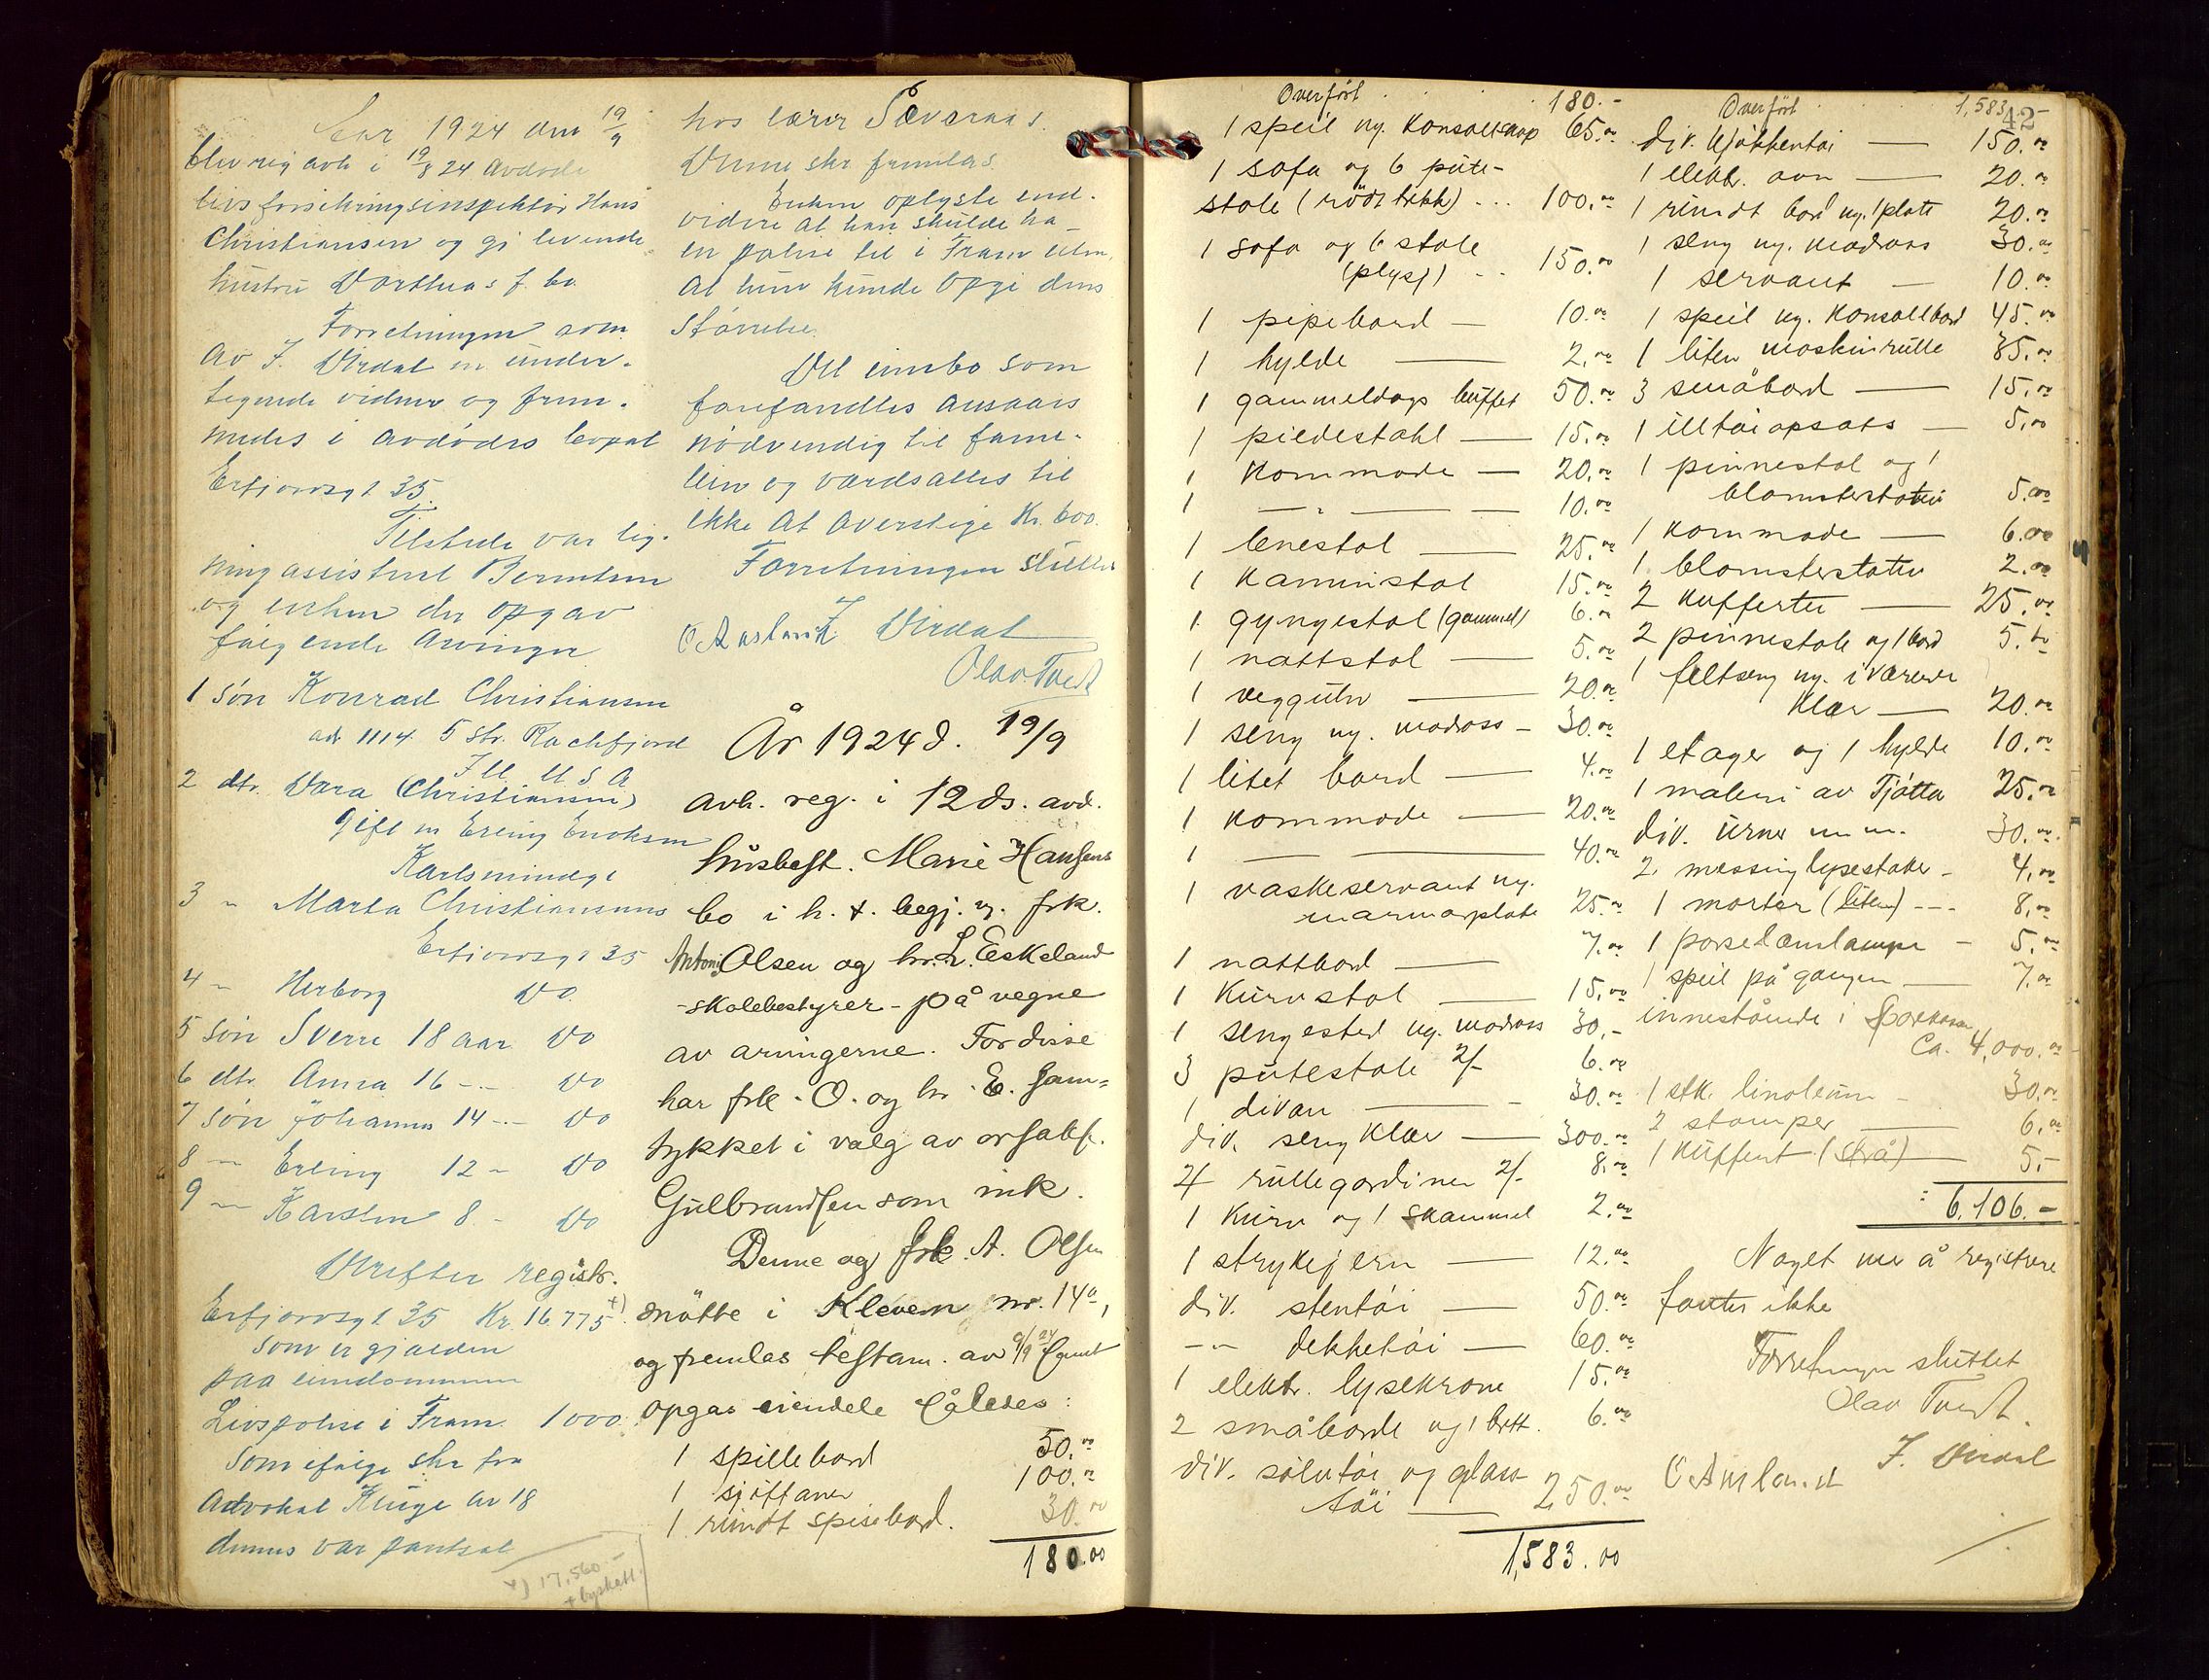 Aar 1924 den 19/9
blev reg avh i 19/8 24 avdøde
livsforsikringsinspektør Hans
Christiansen og gj levende
hustru Dortheas f. bo
Forretningen som
av J. Virdal m under-
tegnede vidner og frem-
medes i avdødes bopæl
Erfjordsgt 35.
Tilstede var lig-
ningassistent Berntsen
og enken der opgav
følgende arvinger
1 søn Konrad Christiansen
adr 1114. 5 Str. Rockfjord
Ill. U S A
2 dtr. Dora (Christiansen)
Gift m Erling Enoksen
Karlsminnegt
3 " Marta Christiansen
Erfjordsgt 35
4 " Herborg Do
5 søn Sverre 18 aar Do
6 dtr. Anna 16 -"- Do
7 søn Johannes 14 -"- Do
8 " Erling 12 " Do
9 " Karsten 8 " Do
Derefter registr.
Erfjordsgt 35 Kr. 16.775 +)
som er gjælden
paa eiendommen
Livspolise i Fram 1000
som ifølge skr fra
Advokat Kluge av 18
dennes var pantsat
+) 17,560 -
+ byskatt.
hos lærer Sævernes.
Denne skr fremlas.
Enken oplyste end-
videre at han skulde ha
en polise til i Fram uten
at hun kunde opgi dens
størrelse.
Det innbo som
forefandtes ansaaes
nødvendig til fami-
lien og værdsattes til
ikke at overstige Kr. 600.
Forretningen sluttet
O Aasland J. Virdal
Olav Tvedt
År 1924 d. 19/9
avh. reg. i 12 ds. avd.
husbest. Marie Hansens
bo i h. t. begj. v. frk.
Antoni Olsen og hr. L. Eskeland
- skolebestyrer - på vegne
av arvingerne. For disse
har frk. O. og hr. E. sam-
tykket i valg av orsakf.
Gulbrandsen som ink.
Denne og frk. A. Olsen
møtte i Kleven nr. 14a,
og fremlas testam. av 9/9 24 samt
opgav eiendele således:
1 spillebord 50.00
1 sjiffaner 100.00
1 rundt spisebord. 30.00
180.00
Overført 180.-
1 speil og. Konsollskap 65.00
1 sofa og 6 pute-
stole (rødt trekk) ... 100.00
1 sofa og 6 stole
(plysj) .. 150.00
1 pipebord — 10.00
1 hylde — 2.00
1 gammeldags buffet 50.00
1 piedestahl — 15.00
1 kommode — 20.00
1 — " — 10.00
1 lenestol — 25.00
1 Kaminstol 15.00
1 gyngestol (gammel) 6.00
1 nattstol — 5.00
1 veggur — 20.00
1 seng og. madrass - 30.00
1 litet bord — 4.00
1 kommode — 20.00
1 — — 40.00
1 vaskeservant og.
marmorplate 25.00
1 nattbord — 7.00
1 Kurvstol — 15.00
1 sengested og. madrass 30.-
3 putestole 2/- 6.00
1 divan — 30.00
div. sengklær — 300.00
4 rullegardiner 2/- 8.00
1 Kurv og 1 skammel 2.00
1 strykejern — 12.00
div. stentøi — 50.00
-"- dekketøi — 60.00
1 elektr. lysekrone 15.00
2 småborde og 1 brett. 6.00
div. sølvtøi og glass-
tøi — 250.00
1,583.00
42
Overført 1,583.-
div. Kjøkkentøi — 150.00
1 elektr. ovn — 20.00
1 rundt bord og. 1 plate 20.00
1 seng og. madrass 30.00
1 servant — 10.00
1 speil og. Konsollbord 45.00
1 liten maskinrulle 35.00
3 småbord — 15.00
1 illtøiopsats — 5.00
1 pinnestol og 1
blomsterstativ 5.00
1 kommode — 6.00
1 blomsterstativ 2.00
2 kufferter — 25.00
2 pinnestole og 1 bord 5.00
1 feltseng og. iværende
klær — 20.00
1 etager og 1 hylde 10.00
1 maleri av Tjøtta 25.00
div. urner m.m. 30.00
2 messinglysestaker - 4.00
1 morter (liten) --- 8.00
1 porselænslampe - 5.00
1 speil på gangen — 7.00
innestående i sparekassen
Ca. 4,000.00
1 stk. linoleum - 30.00
2 stamper — 6.00
1 kuffert (strå) — 5.-
: 6,106.-
Noget mer å registrere
fantes ikke
Forretningen sluttet
Olav Tvedt.
J. Virdal
O Aasland